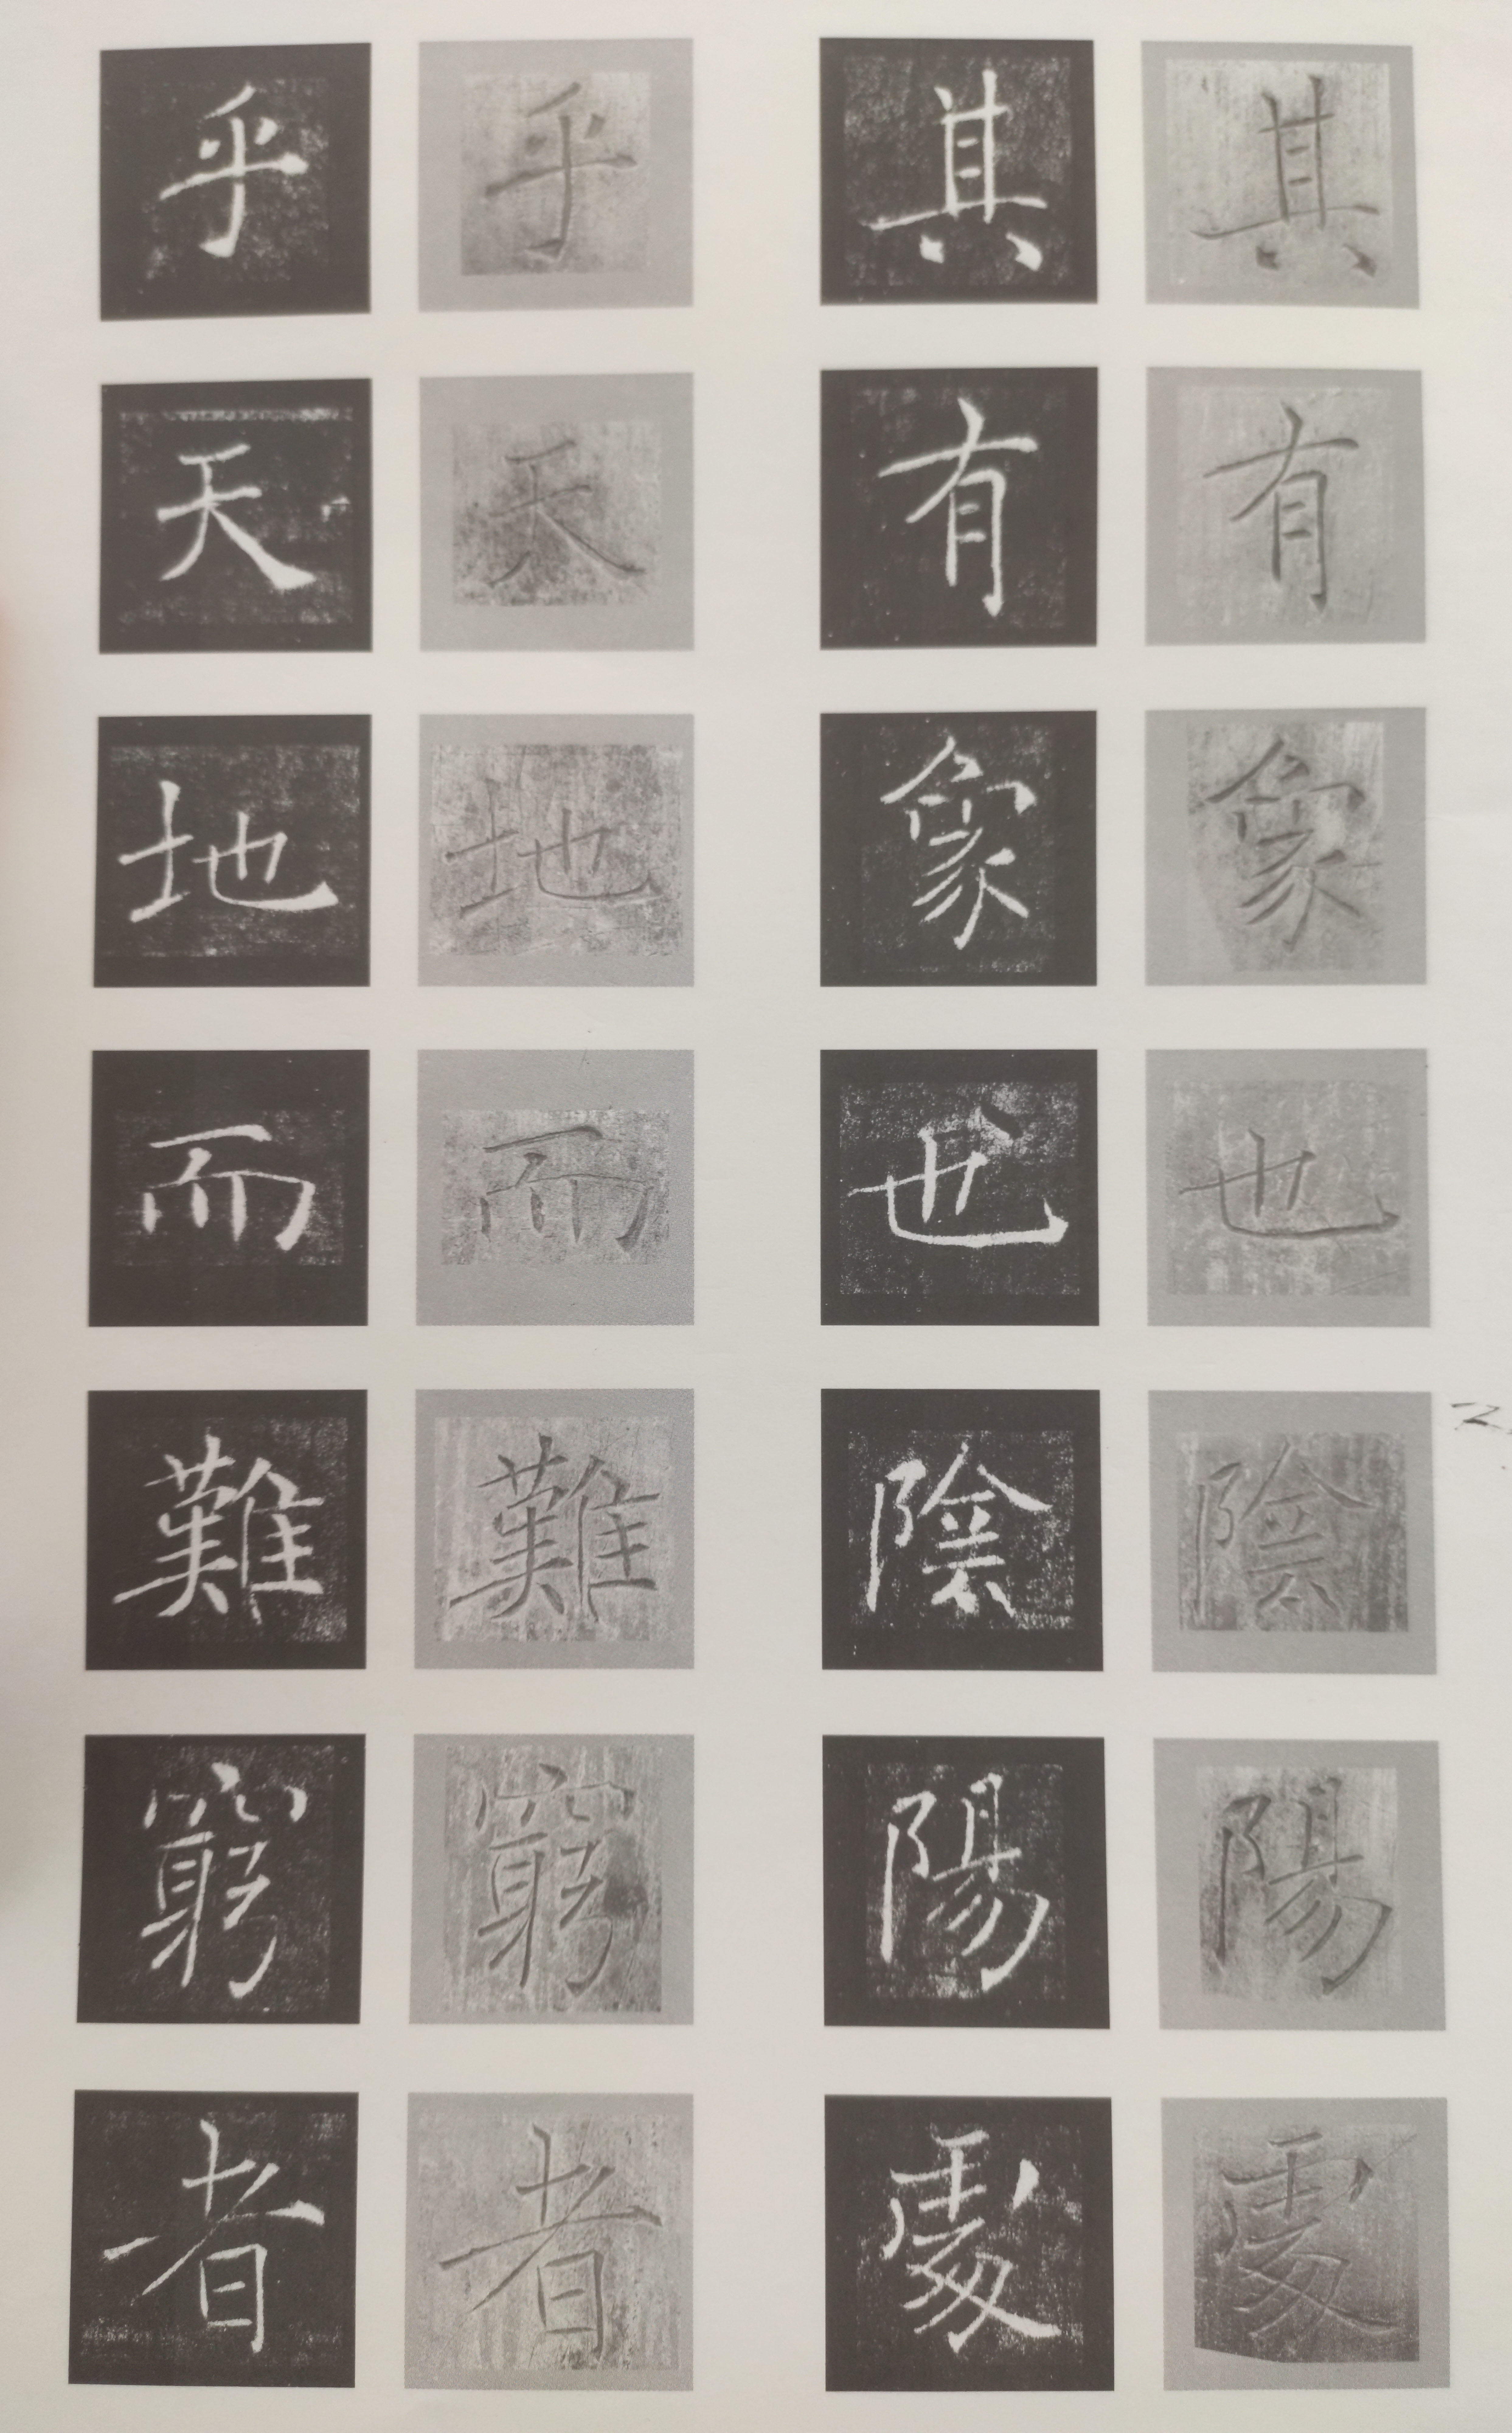 其有象也陰陽處
其有象也陰陽處
乎天地而難窮者
乎天地而難窮者